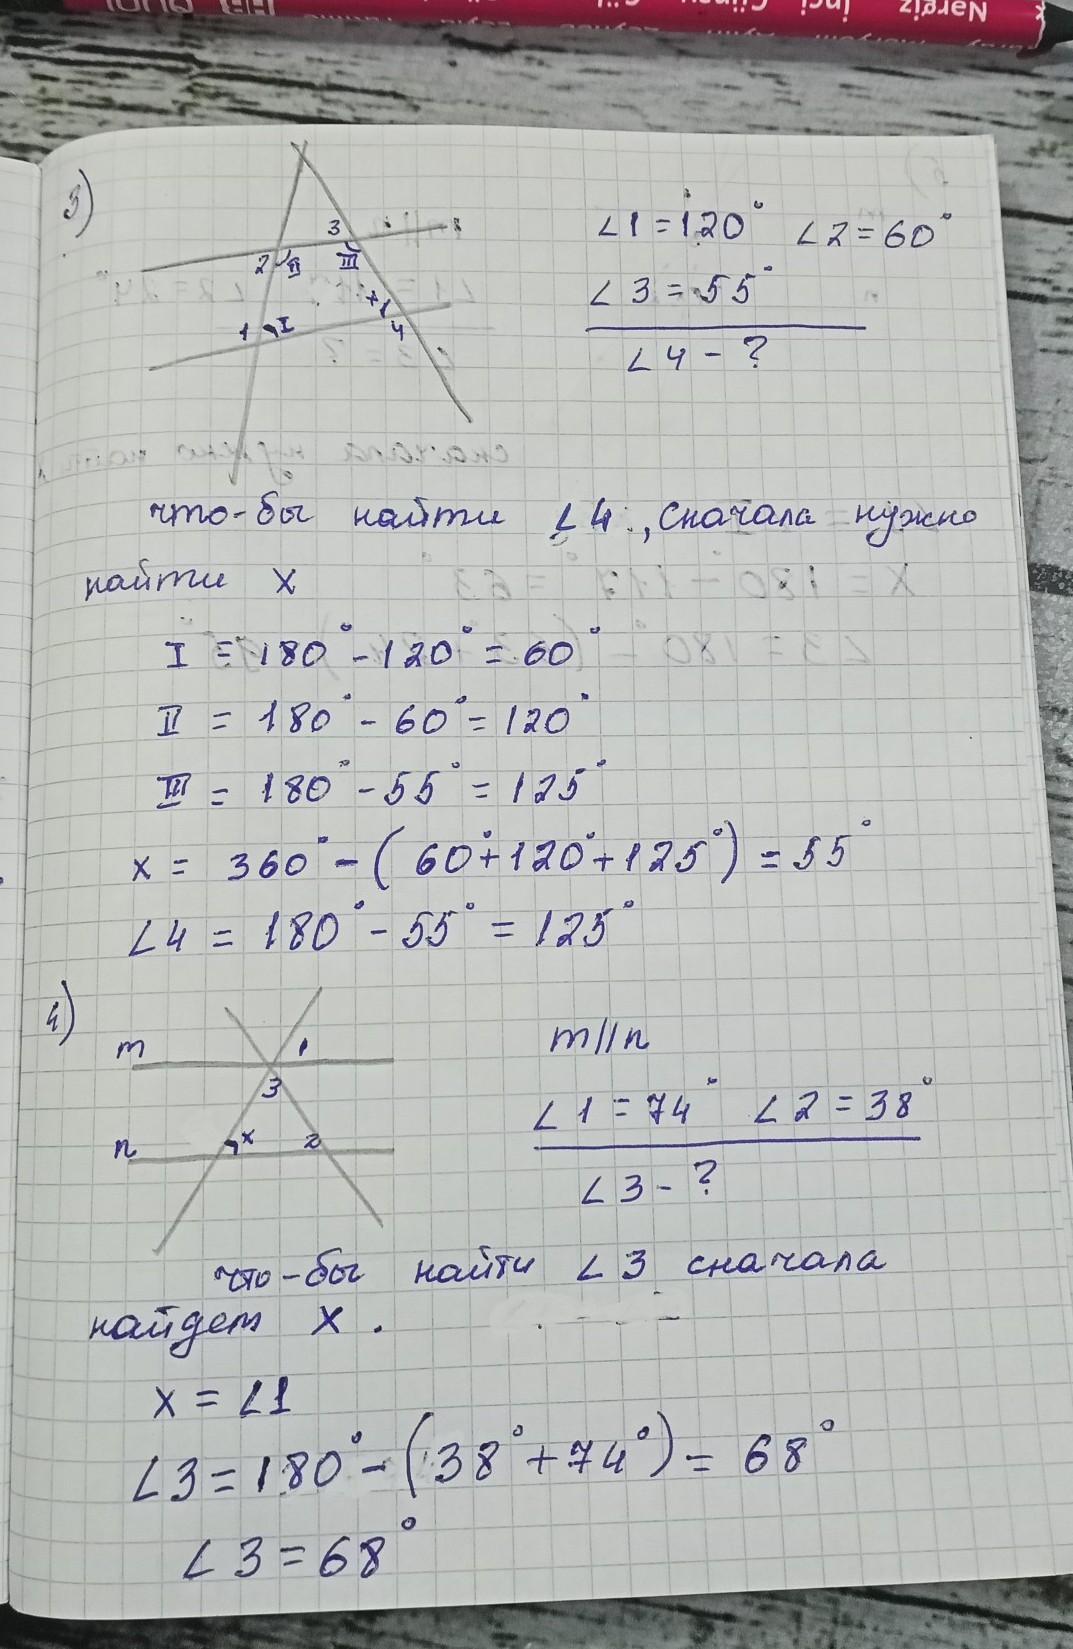 Nərgiz İnci
3)
3
2 II III
x
1 I 4
∠1 = 120° ∠2 = 60°
∠3 = 55°
∠4 - ?
что-бы найти ∠4, сначала нужно
найти x
I = 180° - 120° = 60°
II = 180° - 60° = 120°
III = 180° - 55° = 125°
x = 360° - (60° + 120° + 125°) = 55°
∠4 = 180° - 55° = 125°
4)
m 1
3
n x 2
m||n
∠1 = 74° ∠2 = 38°
∠3 - ?
что-бы найти ∠3 сначала
найдет x.
x = ∠1
∠3 = 180° - (38° + 74°) = 68°
∠3 = 68°